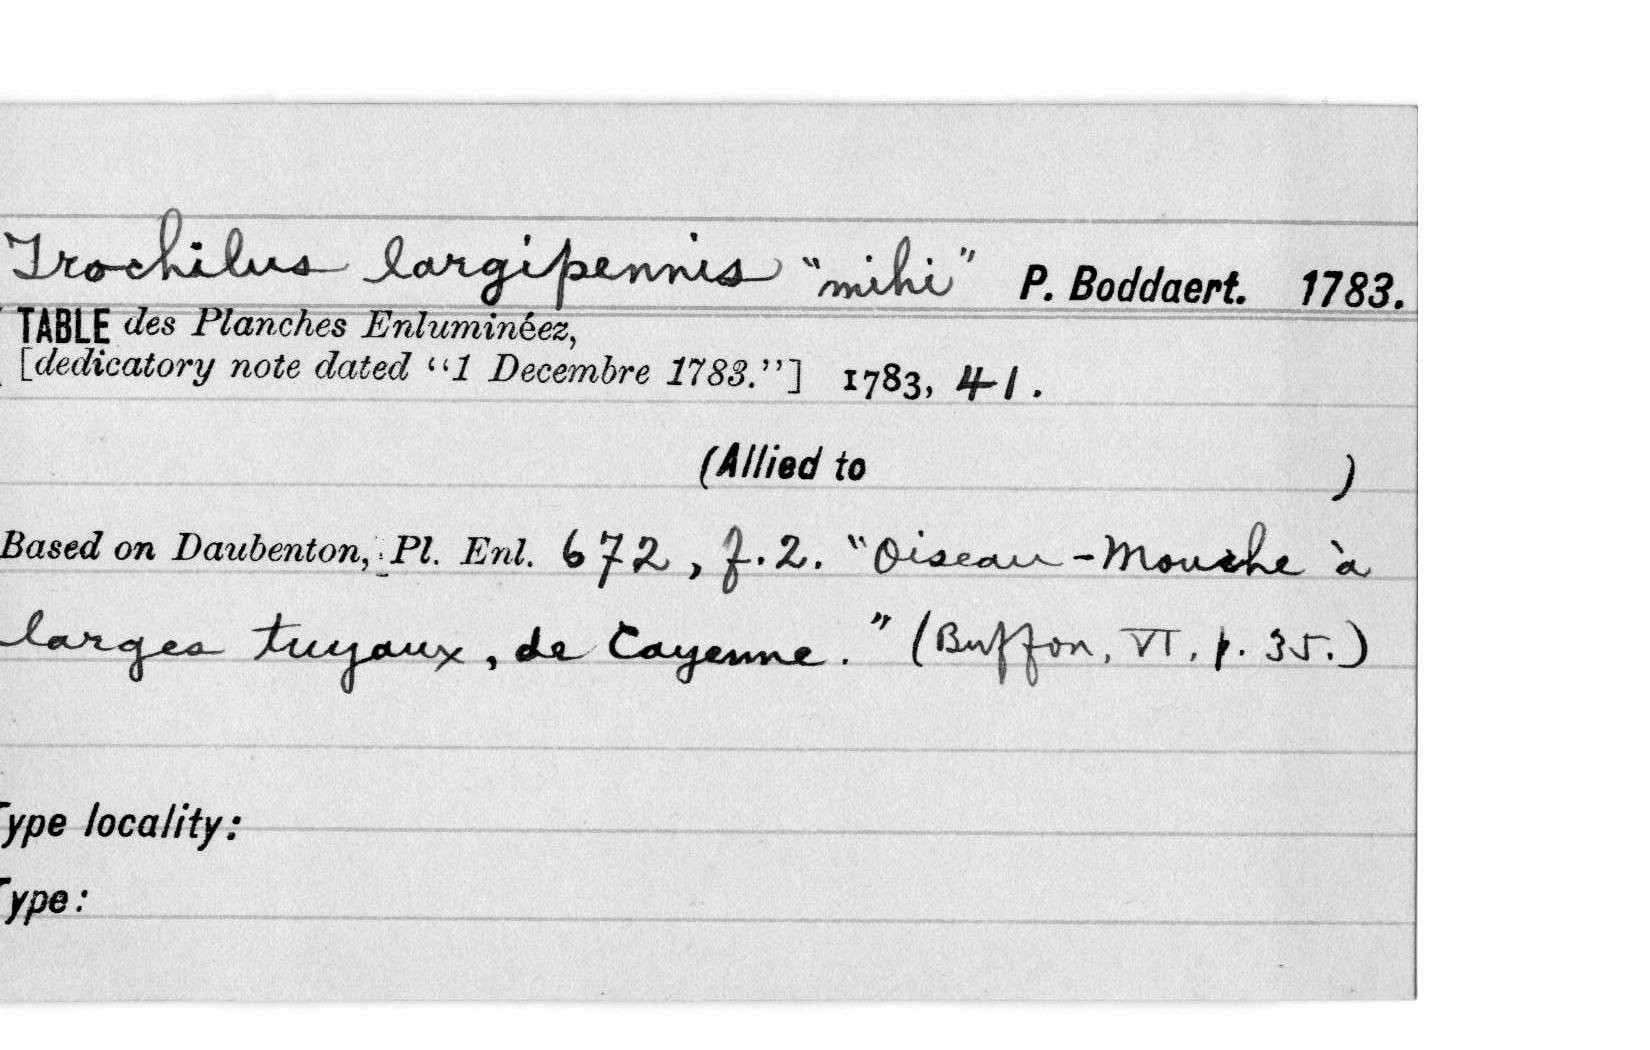 Trochilus largipennis "mihi" P. Boddaert. 1783.
TABLE des Planches Enluminéez,
[dedicatory note dated "1 Decembre 1783."] 1783, 41.
(Allied to )
Based on Daubenton, Pl. Enl. 672, f.2. "Oiseau-Mouche à
larges tuyaux, de Cayenne." (Buffon, VI, p. 35.)
Type locality:
Type: